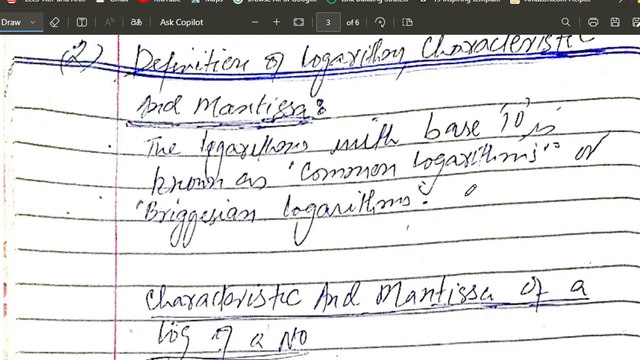 Draw
Ask Copilot
3
of 6
(2) Definition of logarithm, Characteristic
And Mantissa:
The logarithms with base '10' is
known as "Common logarithms" or
'Briggesian logarithms'.
Characteristic And Mantissa of a
log of a No